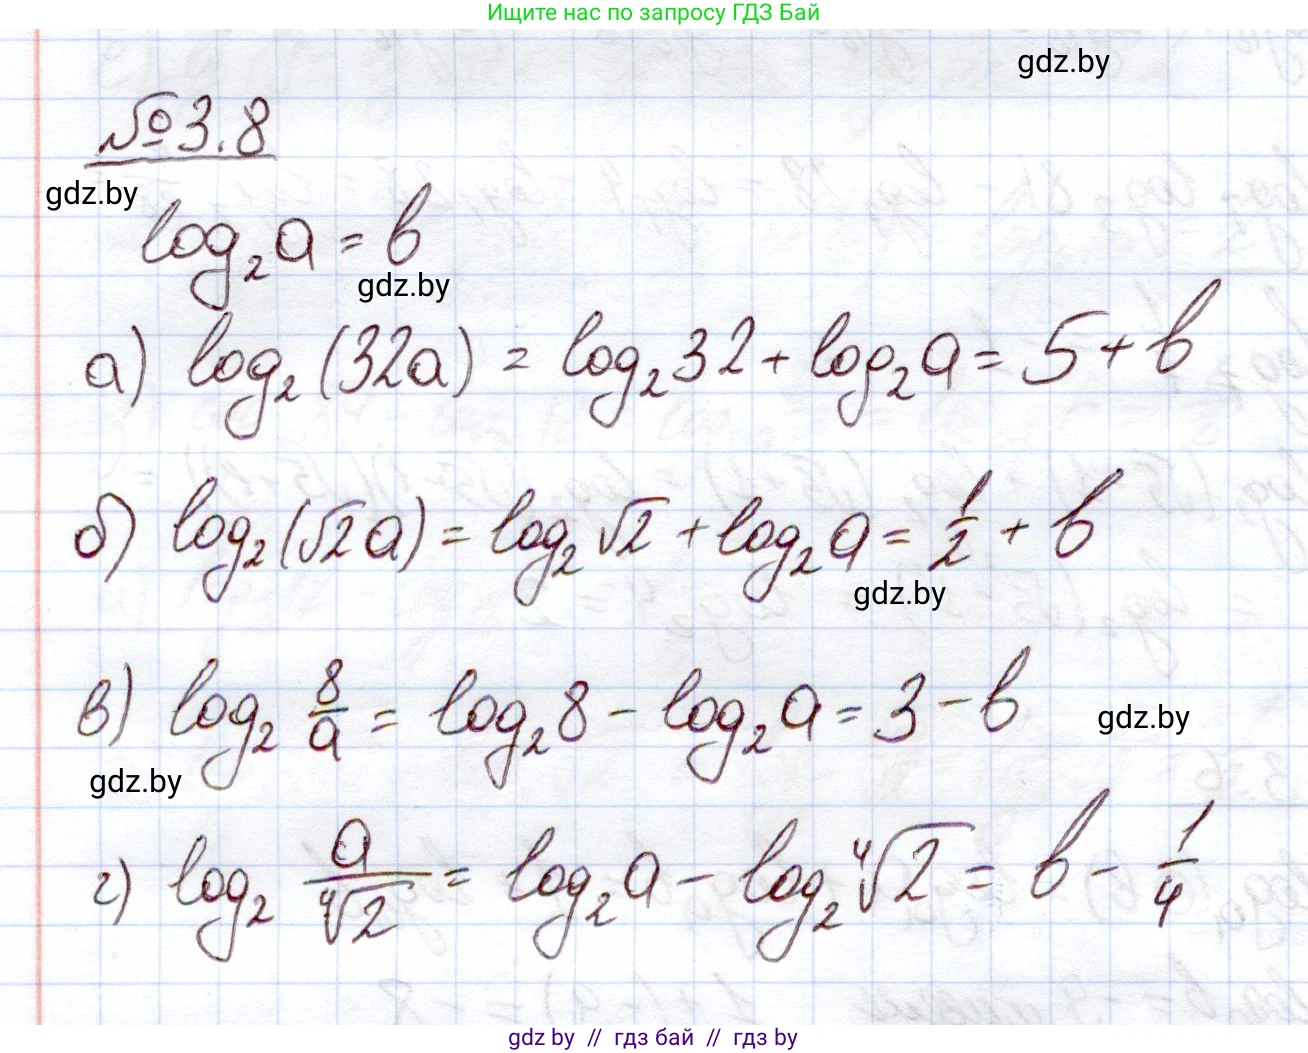 Ищите нас по запросу ГДЗ Бай
gdz.by
№3.8
gdz.by
log₂a = b
gdz.by
а) log₂(32a) = log₂32 + log₂a = 5 + b
б) log₂(√2a) = log₂√2 + log₂a = 1/2 + b
gdz.by
в) log₂ 8/a = log₂8 - log₂a = 3 - b
gdz.by
gdz.by
г) log₂ a/⁴√2 = log₂a - log₂⁴√2 = b - 1/4
gdz.by // гдз бай // гдз by